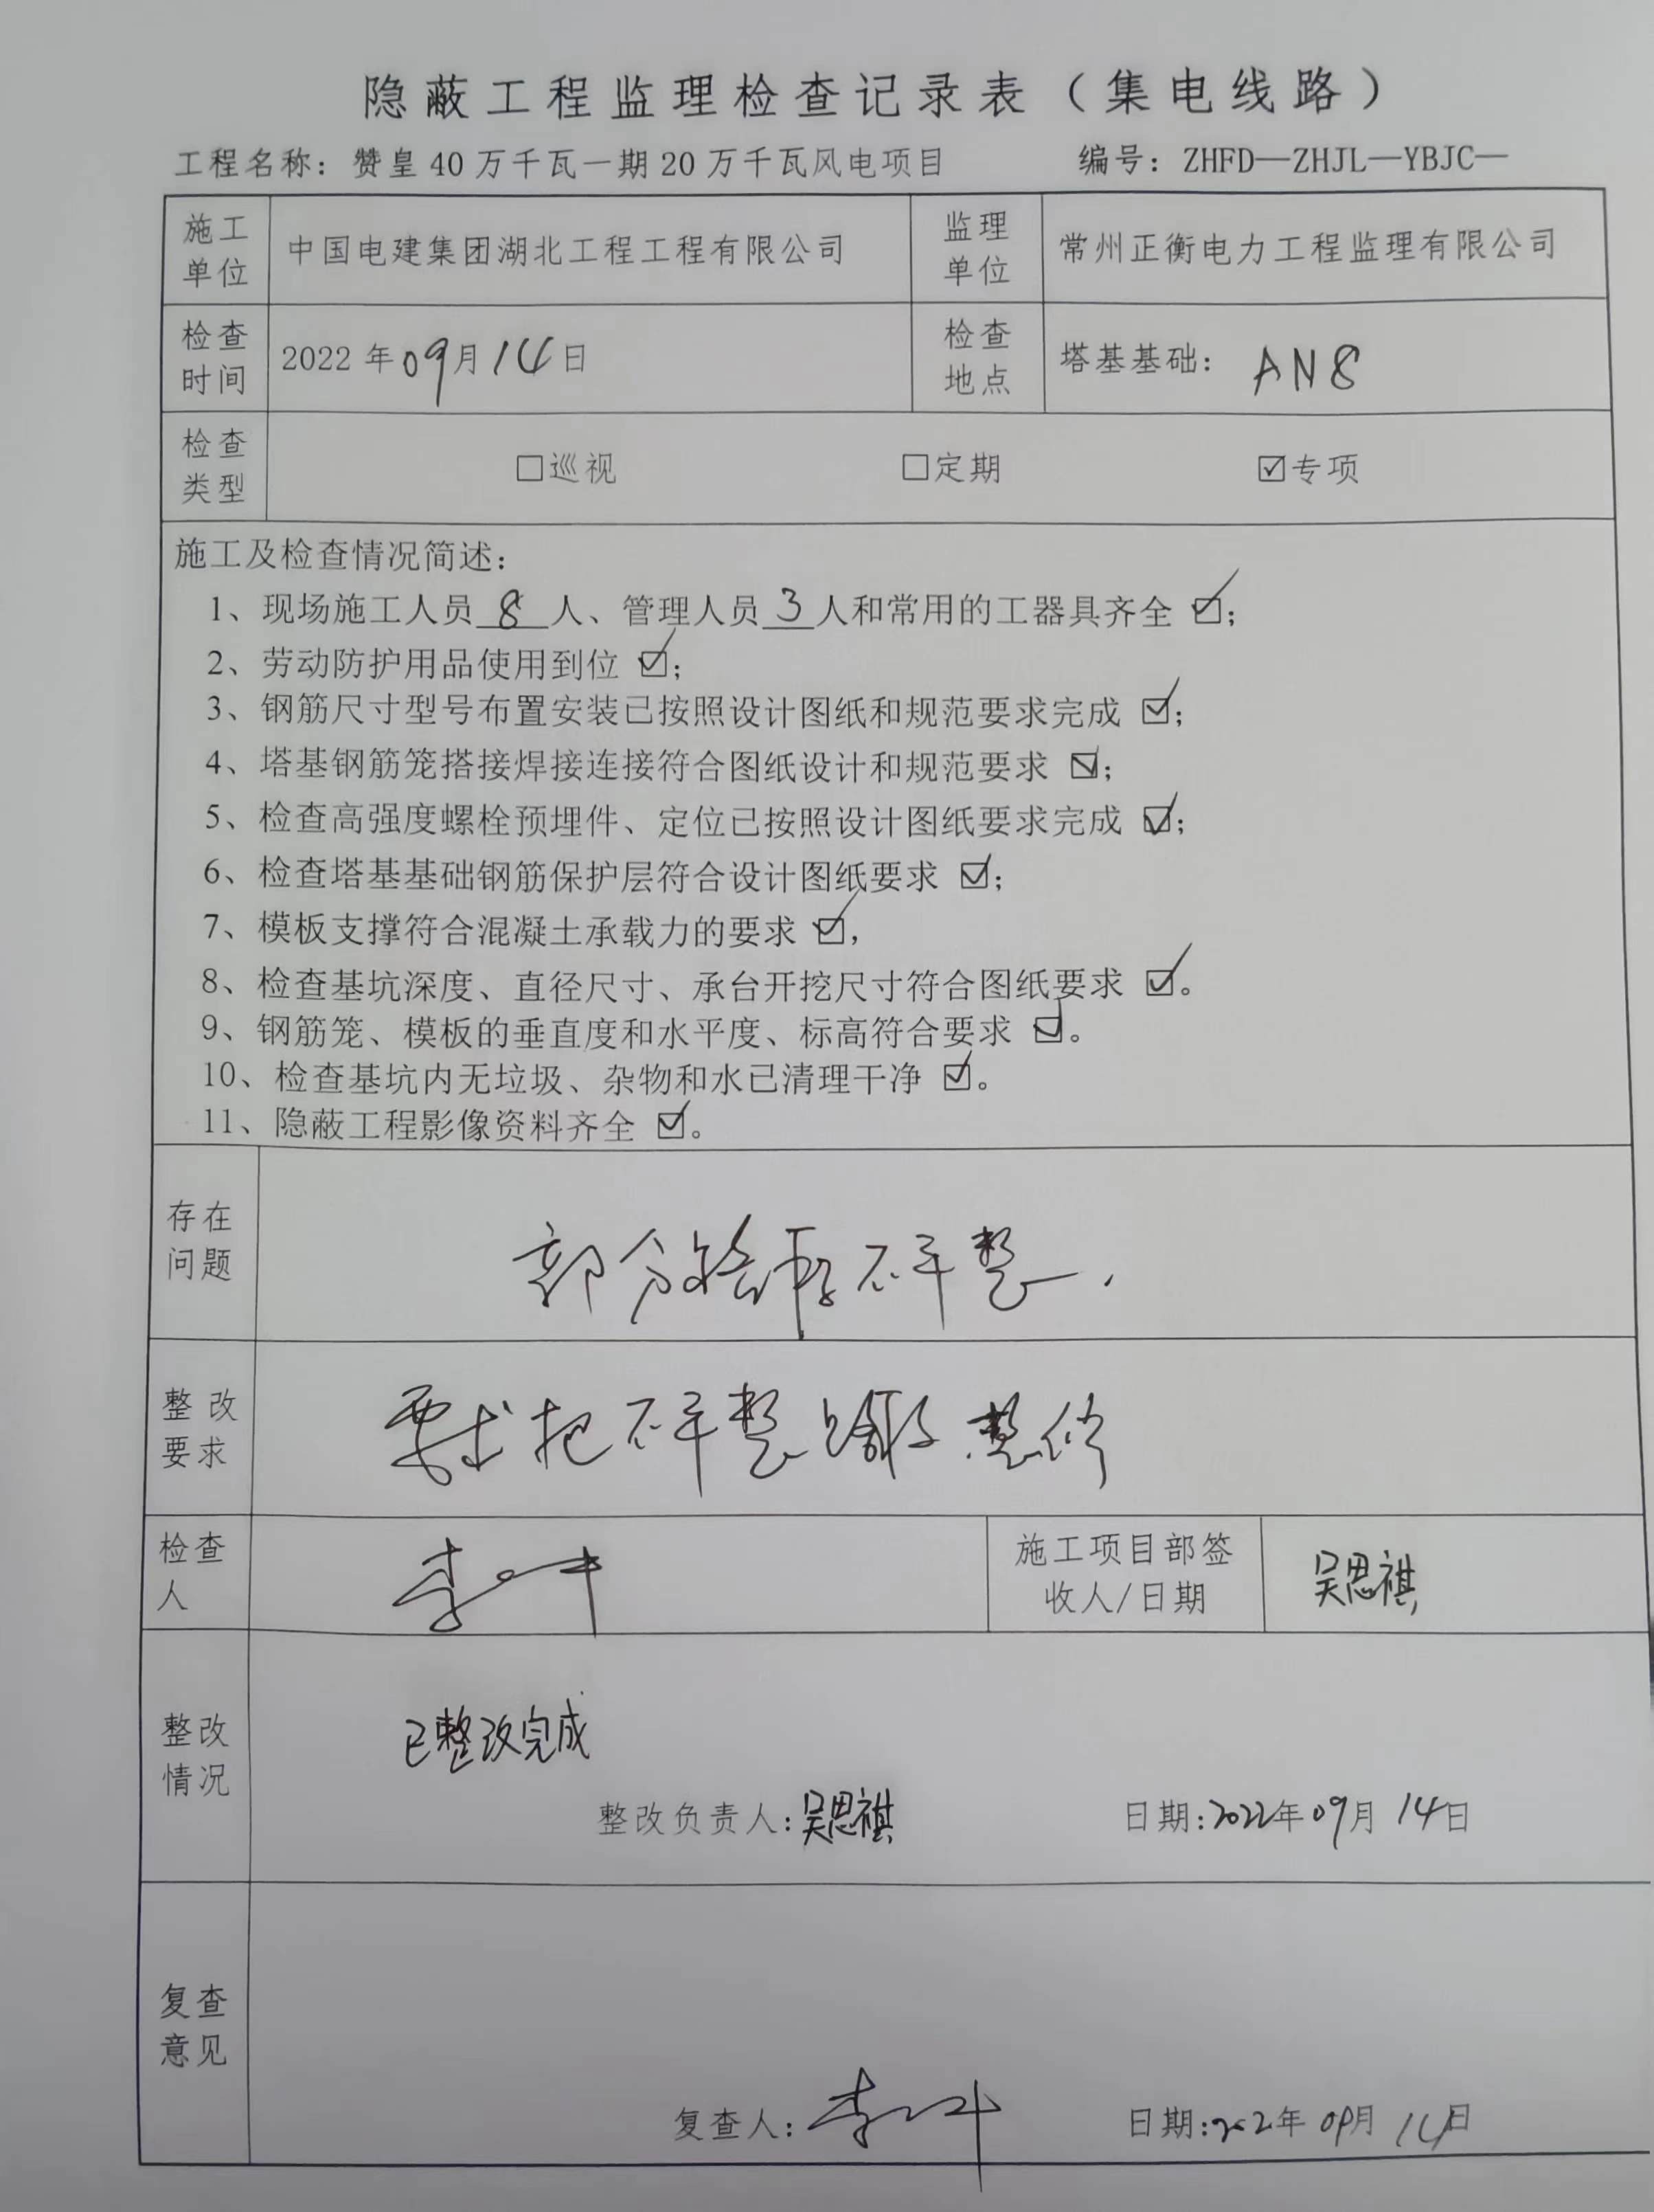 隐蔽工程监理检查记录表（集电线路）
工程名称：赞皇 40 万千瓦一期 20 万千瓦风电项目 编号：ZHFD—ZHJL—YBJC—
施工单位 中国电建集团湖北工程工程有限公司 监理单位 常州正衡电力工程监理有限公司
检查时间 2022 年 09 月 14 日 检查地点 塔基基础： AN8
检查类型 □巡视 □定期 ☑专项
施工及检查情况简述：
1、现场施工人员 8 人、管理人员 3 人和常用的工器具齐全 ☑；
2、劳动防护用品使用到位 ☑；
3、钢筋尺寸型号布置安装已按照设计图纸和规范要求完成 ☑；
4、塔基钢筋笼搭接焊接连接符合图纸设计和规范要求 ☑；
5、检查高强度螺栓预埋件、定位已按照设计图纸要求完成 ☑；
6、检查塔基基础钢筋保护层符合设计图纸要求 ☑；
7、模板支撑符合混凝土承载力的要求 ☑，
8、检查基坑深度、直径尺寸、承台开挖尺寸符合图纸要求 ☑。
9、钢筋笼、模板的垂直度和水平度、标高符合要求 ☑。
10、检查基坑内无垃圾、杂物和水已清理干净 ☑。
11、隐蔽工程影像资料齐全 ☑。
存在问题 部分 不平整.
整改要求 要求把不平整 整修
检查人 李 施工项目部签收人/日期 吴思祺
整改情况 已整改完成
整改负责人：吴思祺 日期：2022年09月14日
复查意见
复查人：李 日期：2022年09月14日